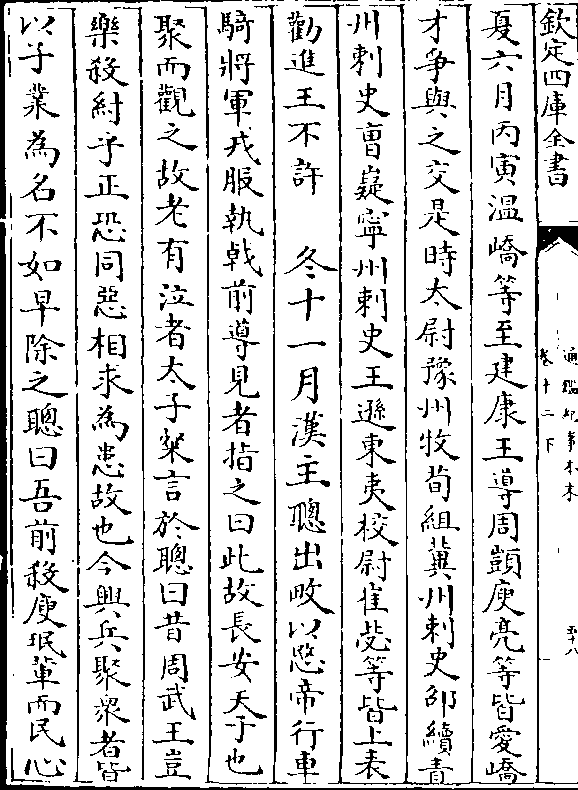 欽定四庫全書
通鑑紀事本末
卷十二下
五十八
夏六月丙寅溫嶠等至建康王導周顗庾亮等皆愛嶠
才爭與之交是時太尉豫州牧荀組冀州刺史邵續青
州刺史曹嶷寧州刺史王遜東夷校尉崔毖等皆上表
勸進王不許　冬十一月漢主聰出畋以愍帝行車
騎將軍戎服執戟前導見者指之曰此故長安天子也
聚而觀之故老有泣者太子粲言於聰曰昔周武王豈
樂殺紂乎正恐同惡相求為患故也今興兵聚衆者皆
以子業為名不如早除之聰曰吾前殺庾珉輩而民心